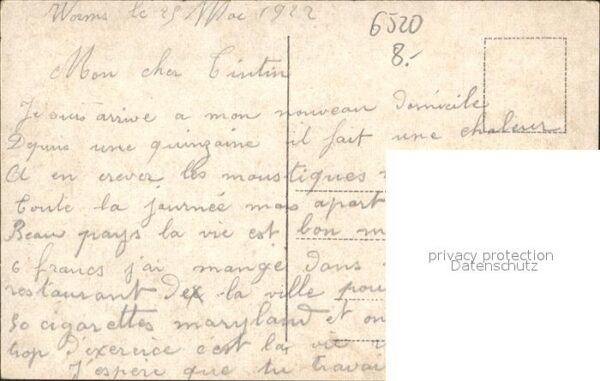 Worms le 25 Mai 1922
6520
8.-
Mon cher Tintin
Je suis arrive a mon nouveau domicile
Depuis une quinzaine il fait une chaleur
A en crever les moustiques
toute la journée mais apart
Beau pays la vie est bon
6 francs j'ai mangé dans
restaurant de la ville pou
50 cigarettes maryland et on
trop d'exercice c'est la vie
J'espère que tu travai
privacy protection
Datenschutz